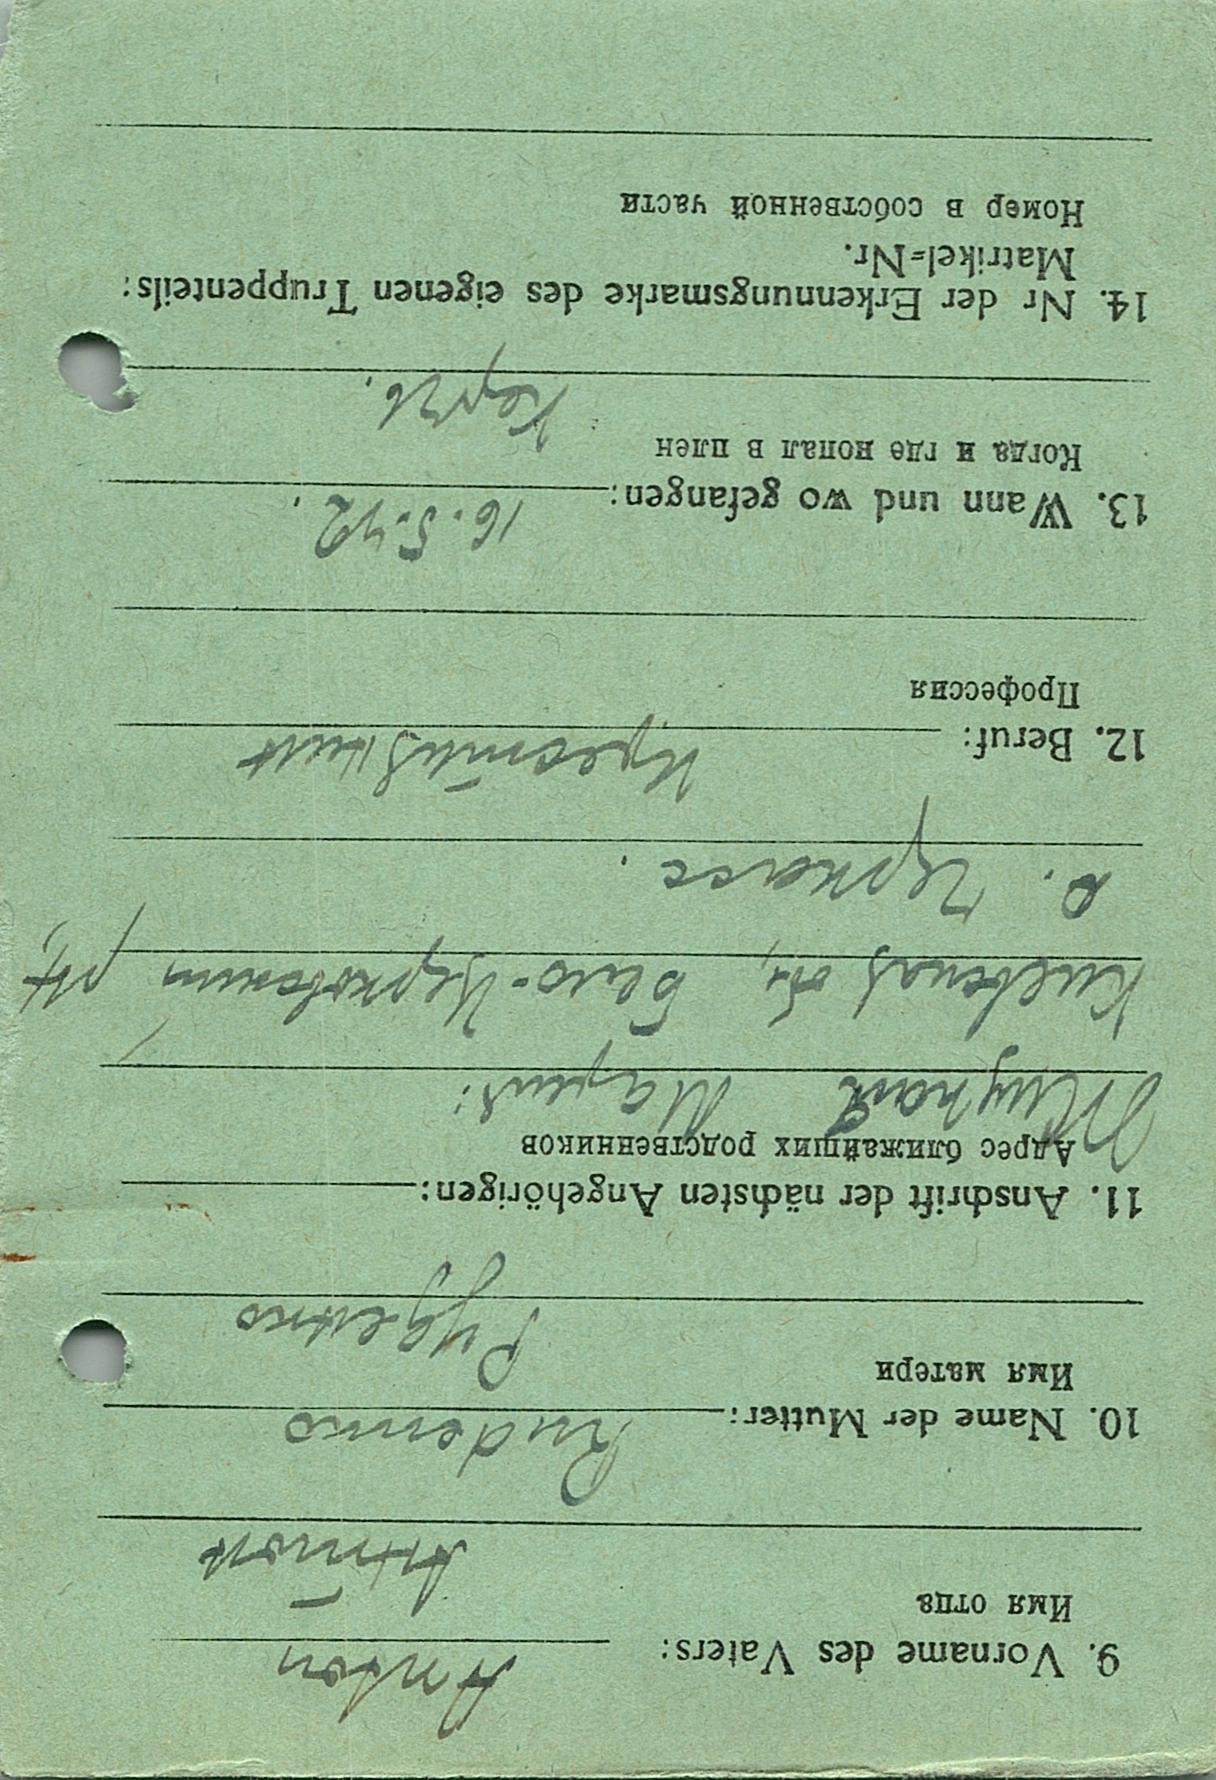 9. Vorname des Vaters: Anton
Имя отца
Антон
10. Name der Mutter: Rudenko
Имя матери
Руденко
11. Anschrift der nächsten Angehörigen:
Адрес ближайших родственников
Мария:
Киевская об, Бело-Церковский р-н,
с. Черкасс.
12. Beruf:
Профессия
13. Wann und wo gefangen: 16.5.42.
Когда и где попал в плен
Керчь.
14. Nr der Erkennungsmarke des eigenen Truppenteils:
Matrikel-Nr.
Номер в собственной части